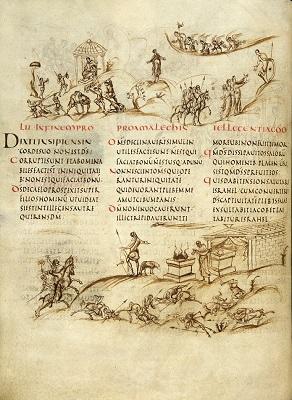 DIXITINSIPIENSIN
CORDESUONONESTDS
CORRUPTISUNTETABOMINA
BILESFACTISUNTINIQUITATI
BNONESTQUIFACIATBONU
DSDECAELOPROSPEXITSUPER
FILIOSHOMINUUTUIDEAT
SIESTINTELLEGENSAUTRE
QUIRENSDM
OMSDECLINAUERSIMULIN
UTILESFACTISUNTNESTQUI
FACIATBONUNESTUSQADUNU
NONNESCIENTOMSQUIOPE
RANTURINIQUITATE
QUIDEUORANTPLEBEMME
AMUTCIBUMPANIS
DMNONINUOCAUERUNT
ILLICTREPIDAUERUNTTI
MOREUBINONFUITTIMOR
QMDSDISSIPAUITOSSAEORU
QUIHOMINIBPLACENTCONFU
SISUNTQMDSSPREUITEOS
QUISDABITEXSIONSALUTARE
ISRAHELCUMCONUERTERITDS
CAPTIUITATEPLEBISSUAE
EXSULTABITIACOBETLAE
TABITURISRAHEL